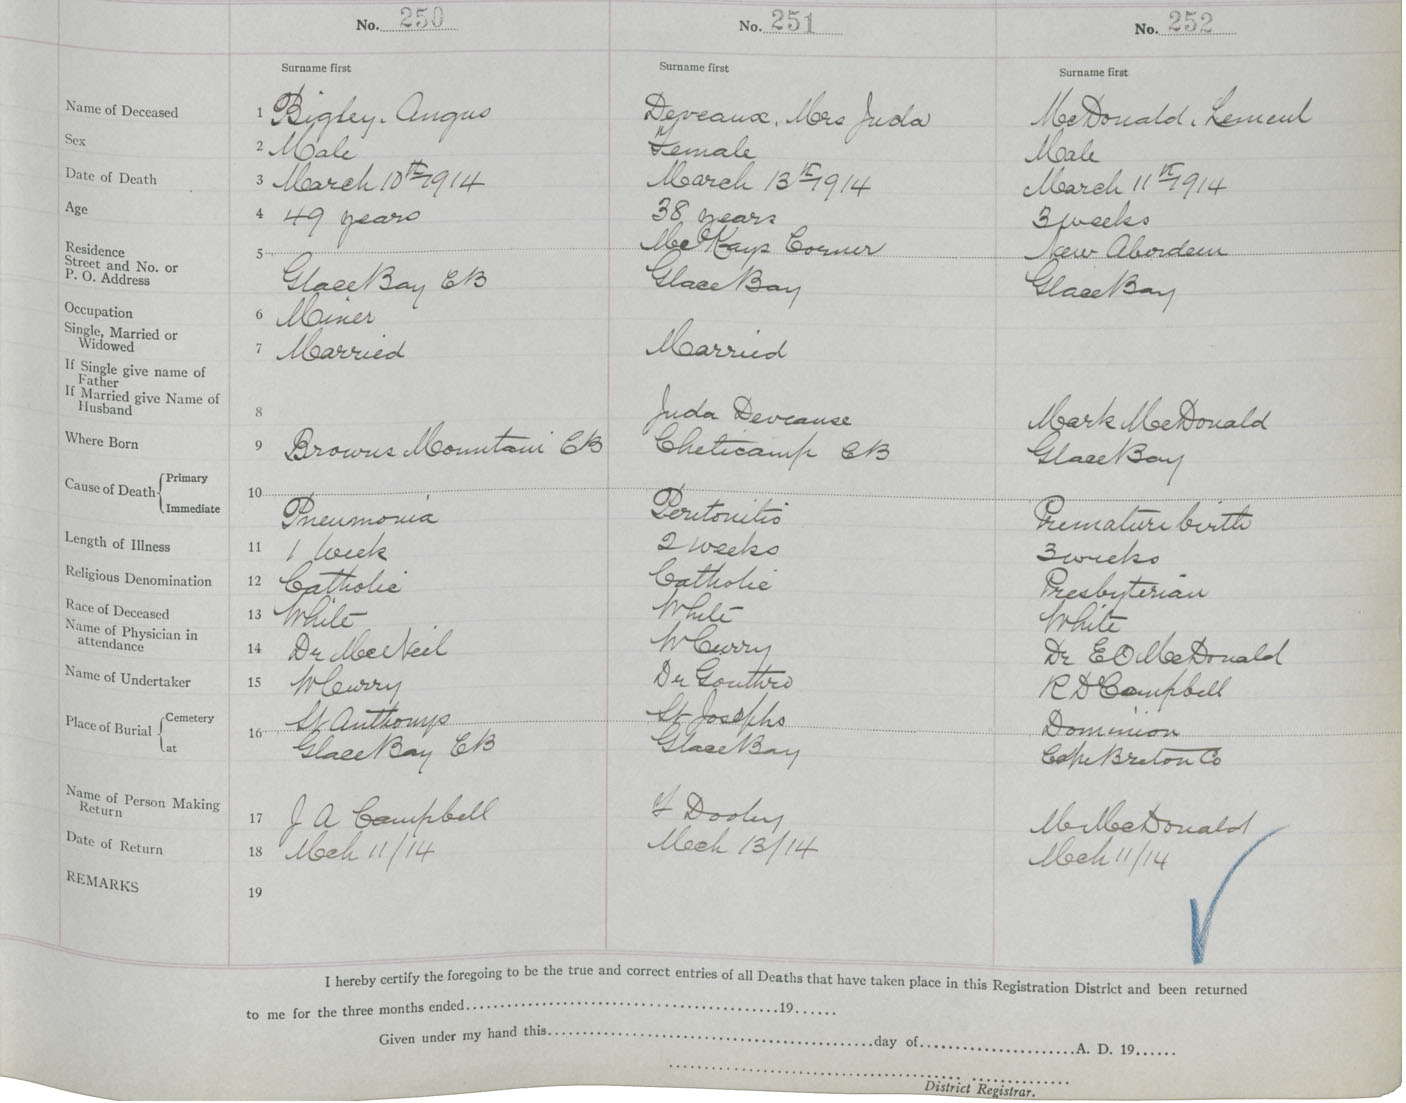 No. 250 No. 251 No. 252
Surname first Surname first Surname first
Name of Deceased 1 Bigley, Angus Deveaux, Mrs Juda McDonald, Lemeul
Sex 2 Male Female Male
Date of Death 3 March 10th 1914 March 13th 1914 March 11th 1914
Age 4 49 years 38 years 3 weeks
Residence 5 McKays Corner New Aberdeen
Street and No. or
P. O. Address Glace Bay CB Glace Bay Glace Bay
Occupation 6 Miner
Single, Married or
Widowed 7 Married Married
If Single give name of
Father
If Married give Name of
Husband 8 Juda Deveause Mark McDonald
Where Born 9 Browns Mountain CB Cheticamp CB Glace Bay
Cause of Death Primary 10
Immediate Pneumonia Peritonitis Premature birth
Length of Illness 11 1 week 2 weeks 3 weeks
Religious Denomination 12 Catholic Catholic Presbyterian
Race of Deceased 13 White White White
Name of Physician in
attendance 14 Dr McNeil W Curry Dr E O McDonald
Name of Undertaker 15 W Curry Dr Gouthro R D Campbell
Place of Burial Cemetery 16 St Anthonys St Josephs Dominion
at Glace Bay CB Glace Bay Cape Breton Co
Name of Person Making
Return 17 J A Campbell Dooley M McDonald
Date of Return 18 Mch 11/14 Mch 13/14 Mch 11/14
REMARKS 19
I hereby certify the foregoing to be the true and correct entries of all Deaths that have taken place in this Registration District and been returned
to me for the three months ended 19
Given under my hand this day of A. D. 19
District Registrar.